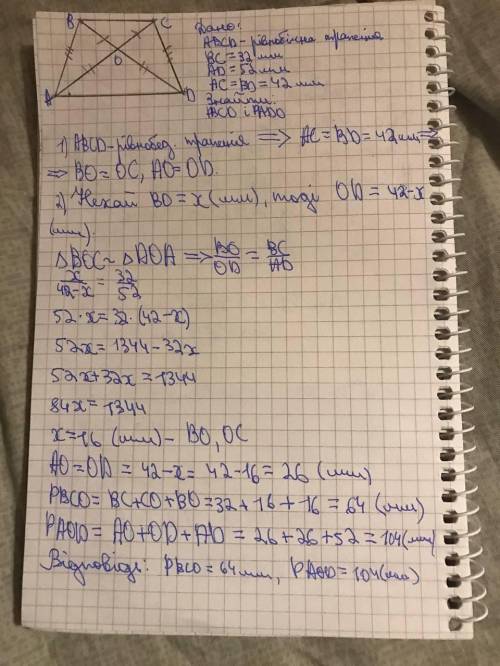 B C
O
A D
Дано:
ABCD - рівнобічна трапеція
BC = 32 мм
AD = 52 мм
AC = BD = 42 мм
Знайти:
PBCO і PADO
1) ABCD - рівнобед. трапеція ⟹ AC = BD = 42 мм ⟹
⟹ BO = OC, AO = OD.
2) Нехай BO = x (мм), тоді OD = 42-x
(мм).
△BOC ~ △DOA ⟹ BO/OD = BC/AD
x/42-x = 32/52
52·x = 32·(42-x)
52x = 1344 - 32x
52x + 32x = 1344
84x = 1344
x = 16 (мм) - BO, OC
AO = OD = 42 - x = 42 - 16 = 26 (мм)
PBCO = BC + CO + BO = 32 + 16 + 16 = 64 (мм)
PAOD = AO + OD + AD = 26 + 26 + 52 = 104 (мм)
Відповідь: PBCO = 64 мм, PAOD = 104 (мм)